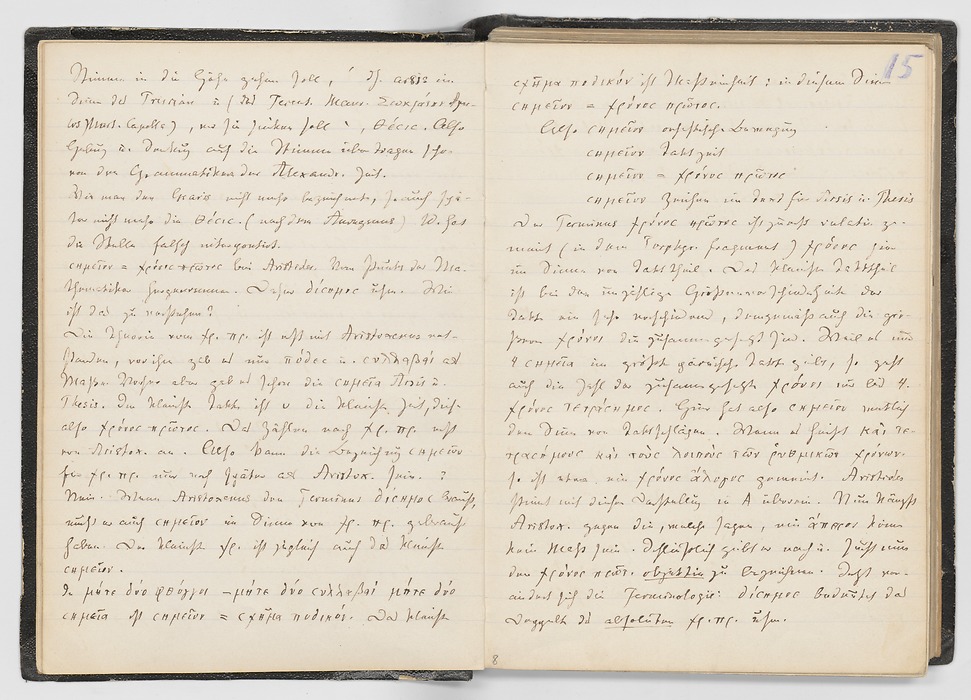 Stimme in die Höhe gehen soll, ´ dh. arsis im
Sinn des Priscian u (des Terent. Maur.
), wo sie sinken soll `, θέσις. Also
Hebung u. Senkung auf die Stimme übertragen scho-
von den Grammatikern der Alexandr. Zeit.
Wie man den Gravis nicht mehr bezeichnete, so auch spä-
ter nicht mehr die θέσις. (nach dem Anonymus) W. hat
die Stelle falsch interpretirt.
σημεῖον = χρόνος πρῶτος bei Aristides. Vom Punkte der Ma-
thematiker hergenommen. Daher δίσημος usw. Wie
ist das zu verstehen?
Die Theorie vom χρ. πρ. ist erst mit Aristoxenus ent-
standen, vorher gab es nur πόδες u. συλλαβαί als
Maße. Vorher aber gab es schon die σημεῖα Arsis u.
Thesis. Der kleinste Takt ist υ die kleinste Zeit, dies
also χρόνος πρῶτος. Das Zählen nach χρ. πρ. erst
von Aristox. an. Also kann die Bezeichnung σημεῖον
für χρ. πρ. nur noch später als Aristox. sein. ?
Nein. Wenn Aristoxenus den Terminus δίσημος braucht,
muß er auch σημεῖον im Sinne von χρ. πρ. gebraucht
haben. Der kleinste χρ. ist zugleich auch das kleinste
σημεῖον.
In μήτε δύο φθόγγοι – μήτε δύο συλλαβαί μήτε δύο
σημεῖα ist σημεῖον = σχῆμα ποδικόν. Das kleinste
8
15
σχῆμα ποδικόν ist Maßeinheit: in diesem Sinn
σημεῖον = χρόνος πρῶτος.
Also σημεῖον orchestische Bewegung
σημεῖον Taktzeit
σημεῖον = χρόνος πρῶτος
σημεῖον Zeichen im Text für Arsis u. Thesis
Der Terminus χρόνος πρῶτος ist zuerst relativ ge-
meint (in dem Porphyr. Fragment) χρόνος hier
im Sinne von Takttheil. Der kleinste Takttheil
ist bei den unzähligen Größenverschiedenheiten der
Takte ein sehr verschiedener, demgemäß auch die grö-
ßeren χρόνοι die zusammengesetzt sind. Weil es nur
4 σημεῖα im größten päonischen Takt gibt, so geht
auch die Zahl der zusammengesetzten χρόνοι nur bis 4.
χρόνος τετράσημος. Hier hat also σημεῖον
den Sinn von Taktschlägen. Wenn es heißt καὶ τε-
τρασήμους καὶ τοὺς λοιποὺς τῶν ῥυθμικῶν χρόνων
so ist etwa ein χρόνος ἄλογος gemeint. Aristides
stimmt mit dieser Darstellung in A überein. Nun kämpft
Aristox. gegen die, welche sagen, ein ἄπειρον könne
kein Maß sein. Schließlich gibt er nach u. sucht nun
den χρόνος πρῶτ. objektiv zu bezeichnen. Jetzt ver-
ändert sich die Terminologie: δίσημος bedeutet das
Doppelte des absoluten χρ. πρ. usw.